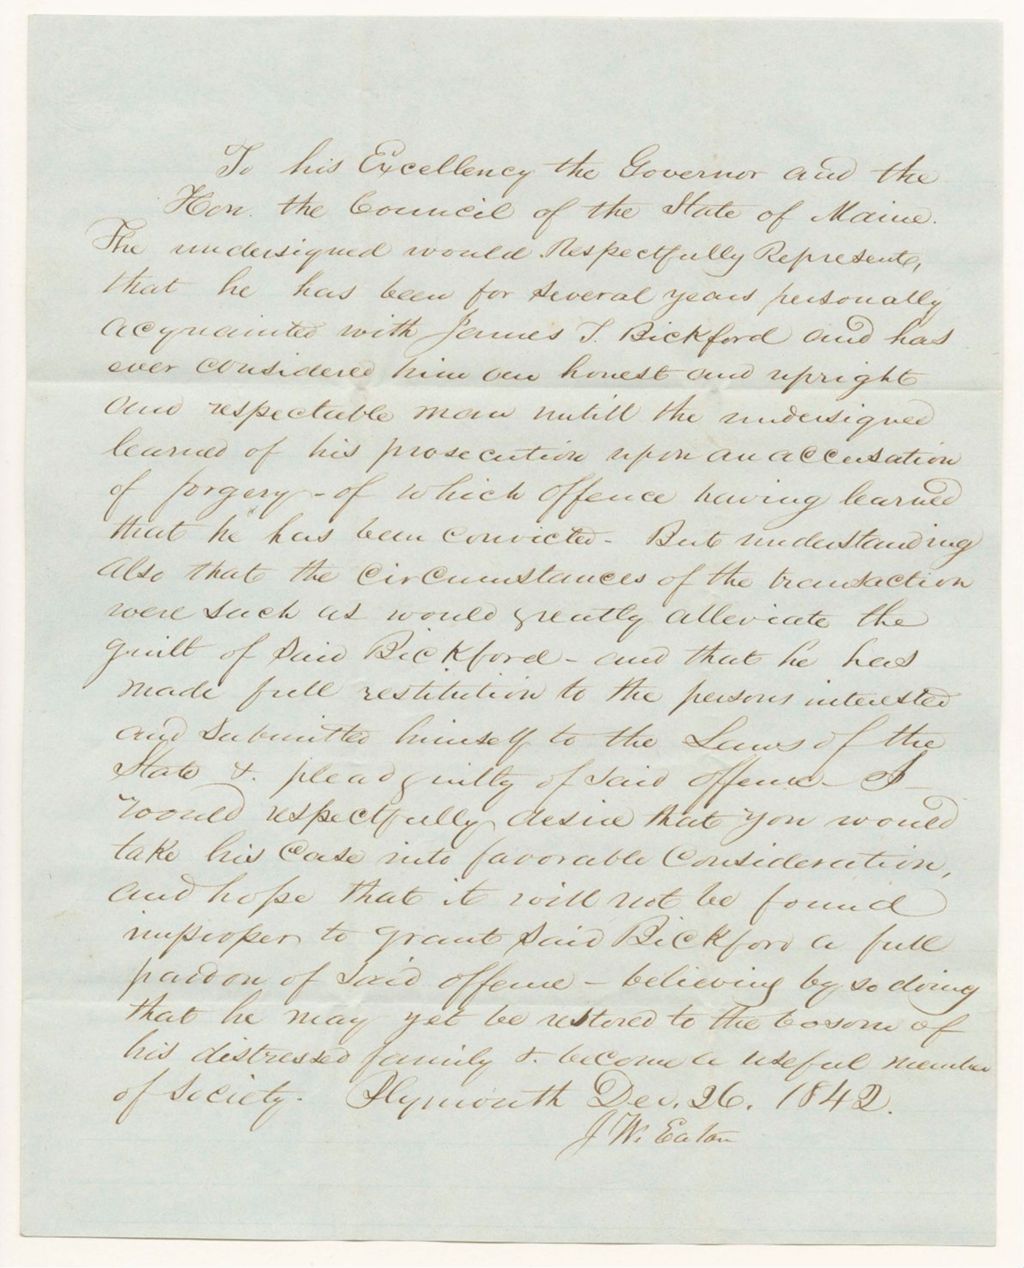 To his Excellency the Governor and the
Hon. the Council of the State of Maine.
The undersigned would Respectfully Represente,
that he has been for several years personally
acquainted with James T. Bickford and has
ever considered him an honest and upright
and respectable man untill the undersigned
learned of his prosecution upon an accusation
of forgery - of which offence having learned
that he has been convicted - But understanding
also that the circumstances of the transaction
were such as would greatly alleviate the
guilt of said Bickford - and that he has
made full restitution to the persons interested
and submitted himself to the Laws of the
State & plead guilty of said offence - I -
would respectfully desire that you would
take his case into favorable consideration,
and hope that it will not be found
improper to grant said Bickford a full
pardon of said offence - believing by so doing
that he may yet be restored to the bosom of
his distressed family & become a useful member
of society. Plymouth Dec. 26. 1842.
J W. Eaton